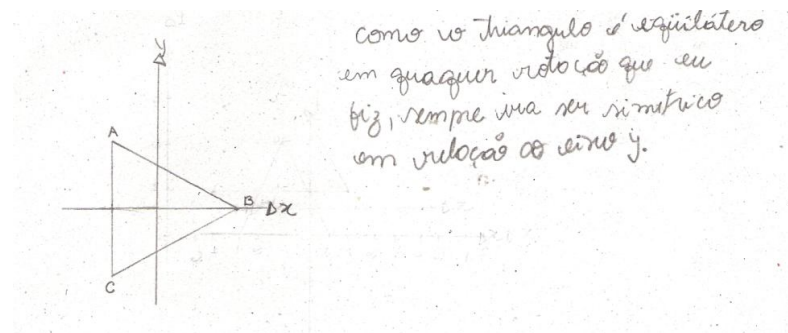 y
A
B x
C
como o triangulo é eqüilátero
em quaquer rotação que eu
fiz, sempre ira ser simetrico
em relação ao eixo y.